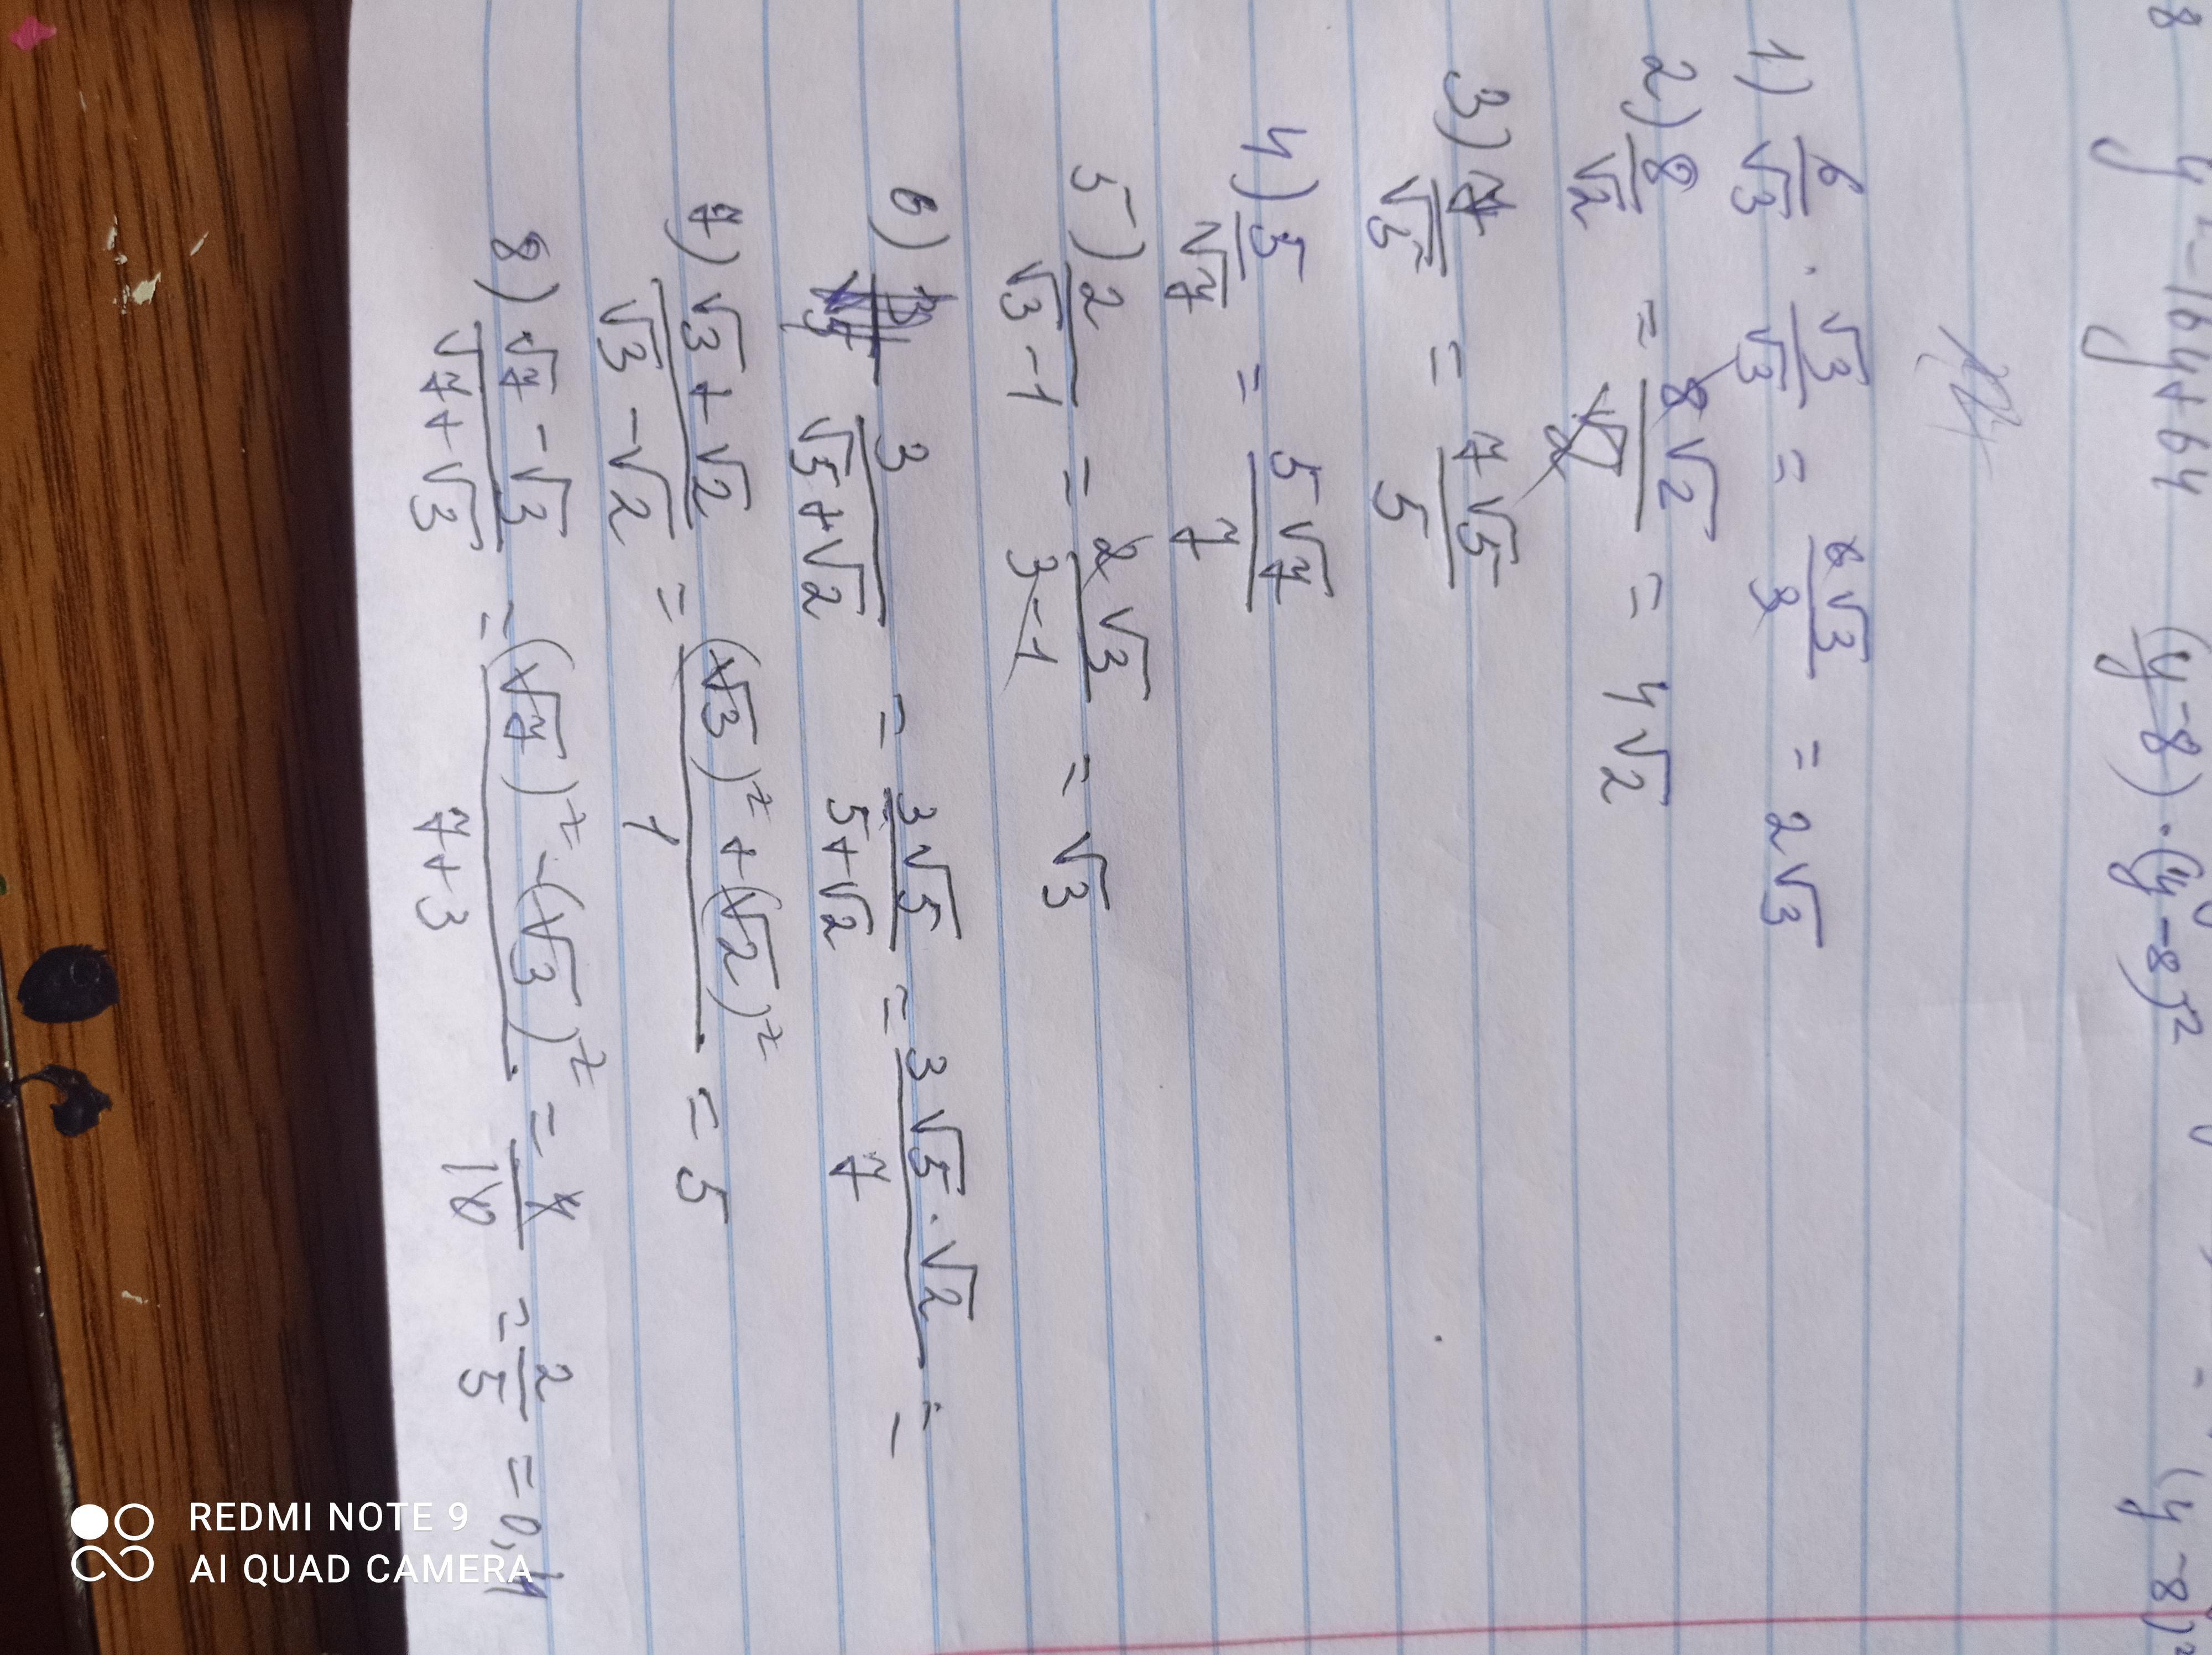 8 y² - 16y + 64 (y-8) · (y-8)² (y-8)²
y y y
1) 6/√3 · √3/√3 = 6√3/3 = 2√3
2) 8/√2 = 8√2/√2 2 = 4√2
3) 7/√5 = 7√5/5
4) 5/√7 = 5√7/7
5) 2/√3-1 = 2√3/3-1 = √3
6) 3/√5+√2 = 3√5/5+√2 = 3√5·√2/7 =
7) √3+√2/√3-√2 = (√3)²+(√2)²/1 = 5
8) √7-√3/√7+√3 = (√7)²-(√3)²/7+3 = 4/10 = 2/5 = 0,4
REDMI NOTE 9
AI QUAD CAMERA